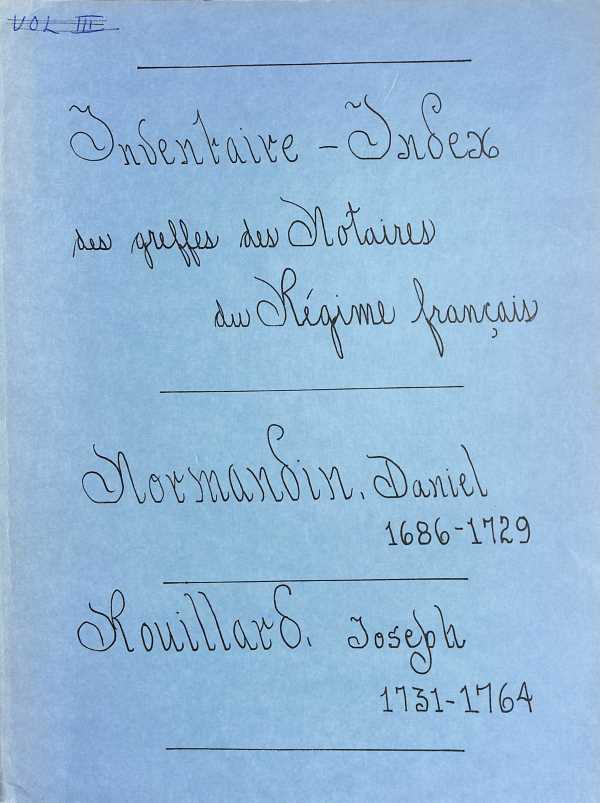 VOL III
Indentaire - Index
des greffes des Notaires
du Régime français
Normandin, Daniel
1686-1729
Rouillard, Joseph
1731-1764